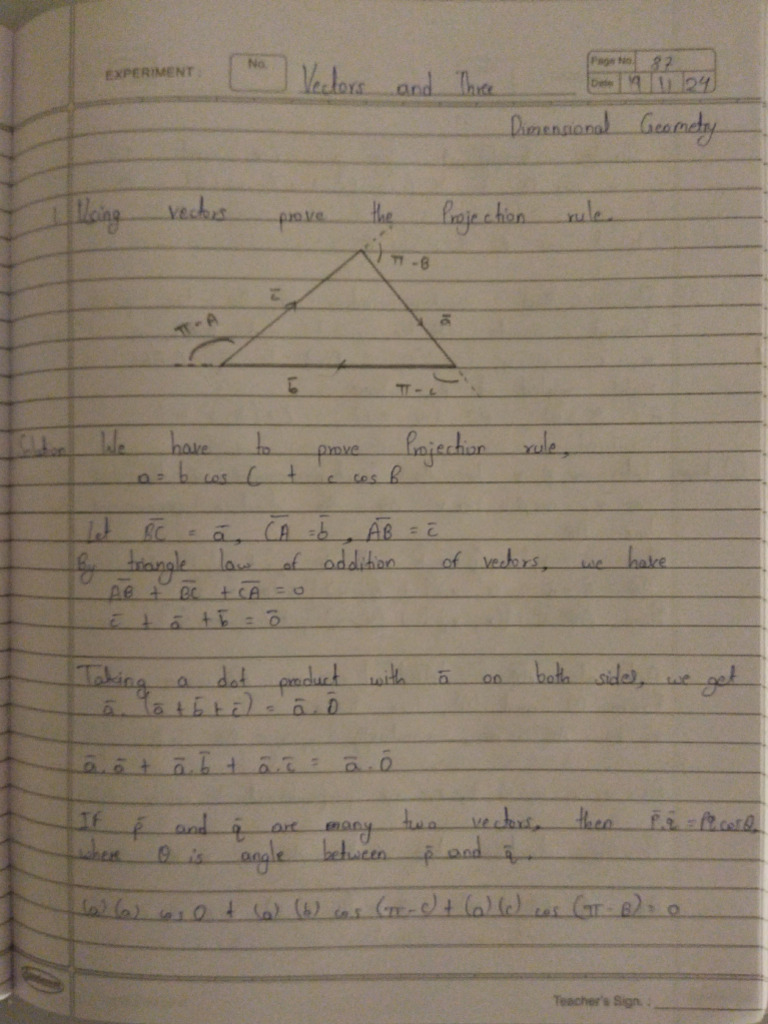 EXPERIMENT :
No.
Vectors and Three
Page No. 87
Date 19 11 24
Dimensional Geometry
1. Using vectors prove the Projection rule.
π-B
c̄
ā
π-A
b̄
π-c
Solution We have to prove Projection rule,
a = b cos C + c cos B
Let B̅C̅ = ā, C̅A̅ = b̄, A̅B̅ = c̄
By triangle law of addition of vectors, we have
A̅B̅ + B̅C̅ + C̅A̅ = 0
c̄ + ā + b̄ = 0̄
Taking a dot product with ā on both sides, we get
ā. (ā + b̄ + c̄) = ā. 0̄
ā.ā + ā.b̄ + ā.c̄ = ā.0̄
If p̄ and q̄ are many two vectors, then p̄.q̄ = pq cosθ,
where θ is angle between p̄ and q̄.
(a) (a) cos 0 + (a) (b) cos (π-c) + (a) (c) cos (π-B) = 0
Teacher's Sign. :